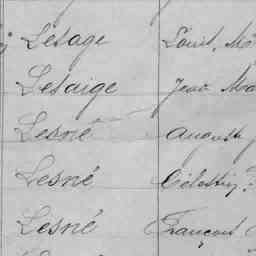 Lesage Louis, Ma
Lesaige Jean Ma
Lesné Auguste
Lesné Célestin
Lesné François